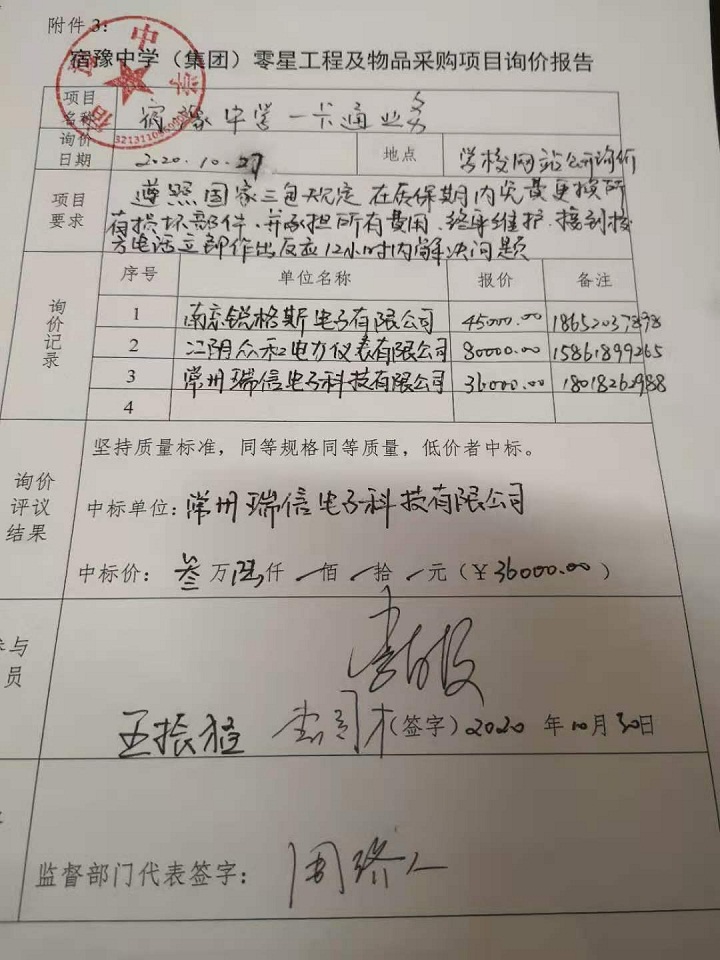 附件 3：
宿豫中学（集团）零星工程及物品采购项目询价报告
项目名称 宿豫中学一卡通业务
询价日期 2020.10.27 地点 学校网站公开询价
项目要求 遵照国家三包规定 在质保期内免费更换所
有损坏部件、并承担所有费用、终身维护、接到校
方电话立即作出反应12小时内解决问题
询价记录 序号 单位名称 报价 备注
1 南京锐格斯电子有限公司 45000.00 18652037898
2 江阴众和电力仪表有限公司 80000.00 15861899265
3 常州瑞信电子科技有限公司 36000.00 18018262988
4
询价评议结果 坚持质量标准，同等规格同等质量，低价者中标。
中标单位：常州瑞信电子科技有限公司
中标价：叁万陆仟 佰 拾 元（￥36000.00）
参与
员
（签字）2020 年 10 月 30 日
监督部门代表签字：